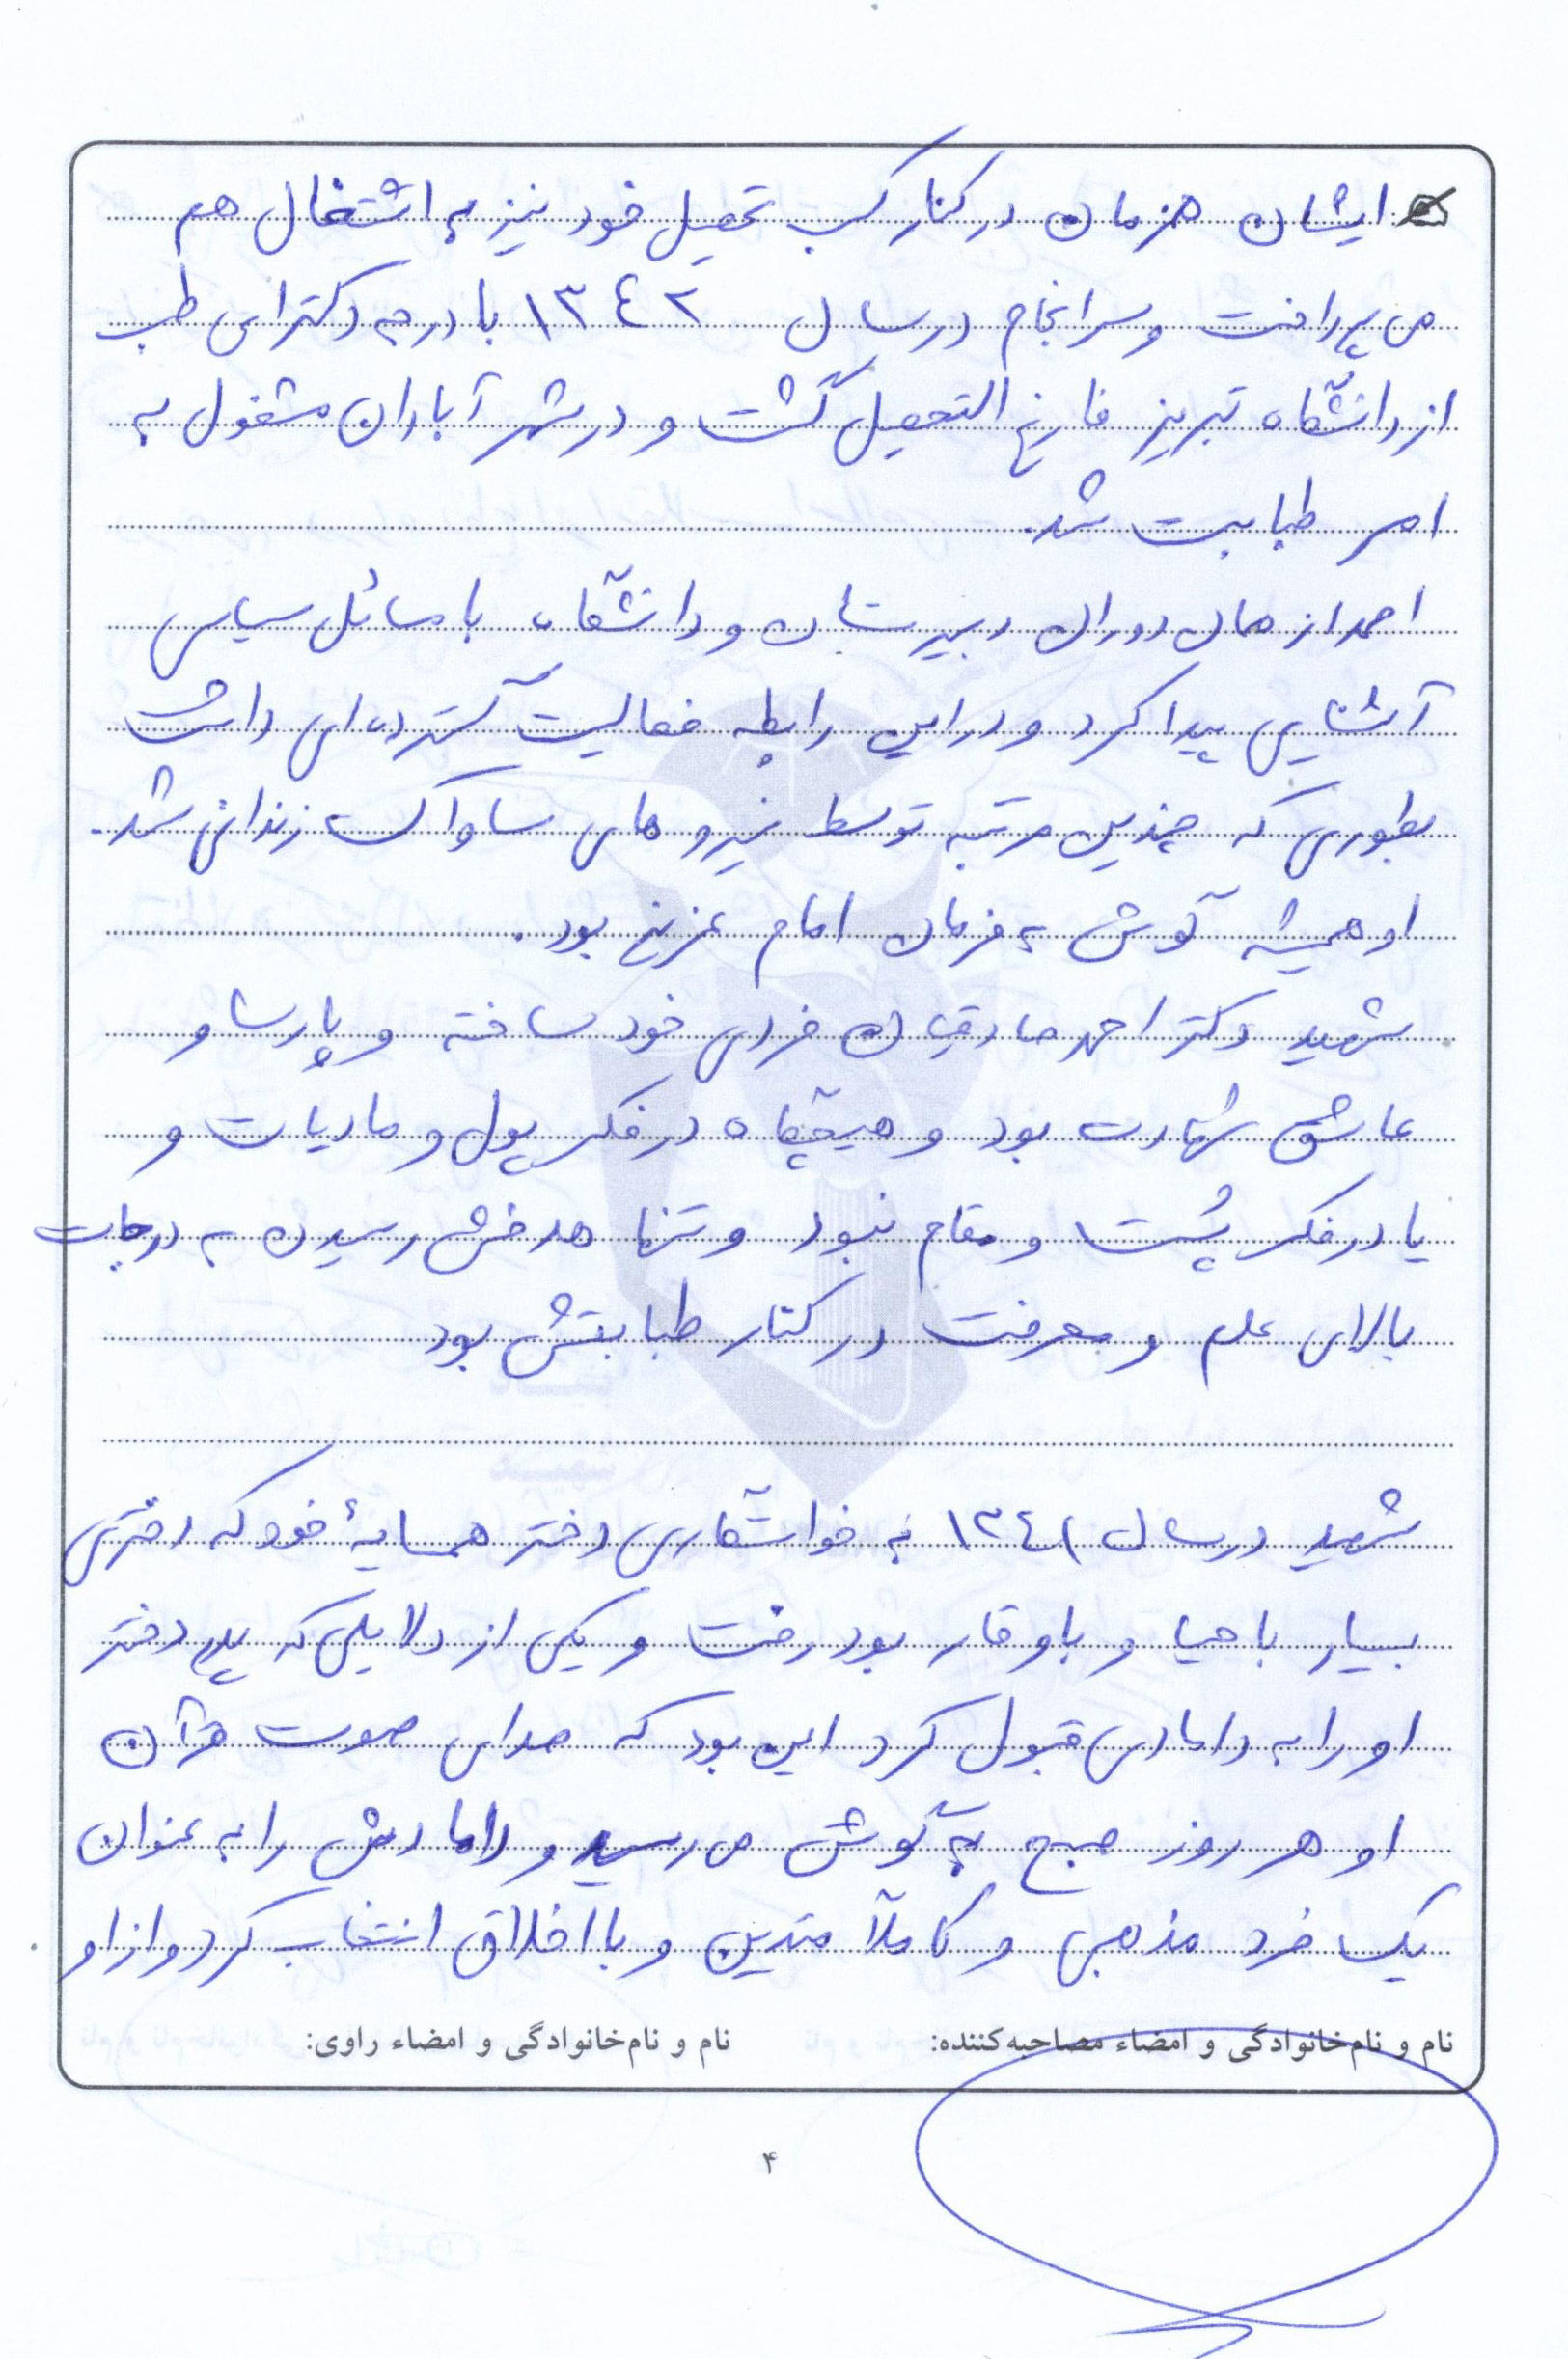 ایشان همزمان در کنار کسب تحصیل خود نیز به اشتغال هم
می پرداخت و سرانجام در سال ۱۳۴۲ با درجه دکترای طب
از دانشگاه تبریز فارغ التحصیل گشت و در شهر آبادان مشغول به
امر طبابت شد.
احمد از همان دوران دبیرستان و دانشگاه با مسائل سیاسی
آشنایی پیدا کرد و در این رابطه فعالیت گسترده ای داشت
بطوری که چندین مرتبه توسط نیرو های ساواک زندانی شد.
او همیشه گوش به فرمان امام عزیز بود.
شهید دکتر احمد صادقیان فردی خود ساخته و پارسا و
عاشق شهادت بود و هیچگاه در فکر پول و مادیات و
یا در فکر پُست و مقام نبود و تنها هدفش رسیدن به درجات
بالای علم و معرفت در کنار طبابتش بود
شهید در سال ۱۳۴۱ به خواستگاری دختر همسایهٔ خود که دختری
بسیار با حیا و باوقار بود رفت و یکی از دلایلی که پدر دختر
او را به دامادی قبول کرد این بود که صدای صوت قرآن
او هر روز صبح به گوش می رسید و دامادش را به عنوان
یک فرد مذهبی و کاملاً متدین و با اخلاق انتخاب کرد و از او
نام و نام‌خانوادگی و امضاء مصاحبه‌کننده: نام و نام‌خانوادگی و امضاء راوی:
۴